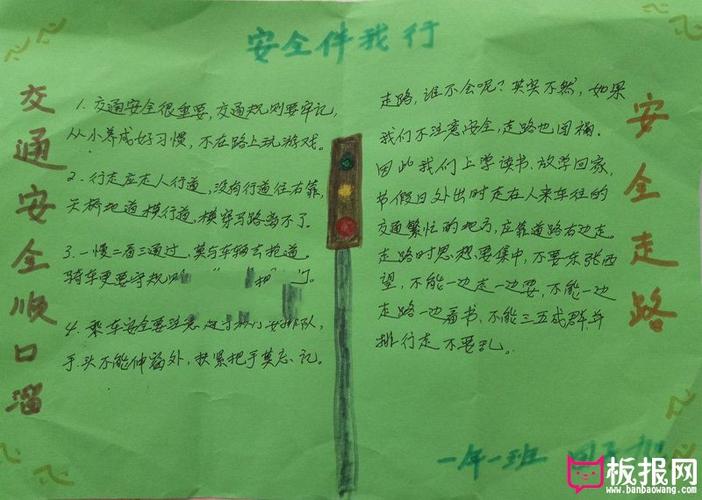 安全伴我行
交通安全顺口溜
1. 交通安全很重要,交通规则要牢记,
从小养成好习惯,不在路上玩游戏。
2. 行走应走人行道,没有行道往右靠,
天桥地道横行道,横穿马路当不了。
3. 一慢二看三通过,莫与车辆去抢道
骑车更要守规则
4. 乘车安全要注意 排队,
手头不能伸窗外,扶紧把手莫忘记。
走路,谁不会呢?其实不然,如果
我们不注意安全,走路也困祸。
因此我们上学读书,放学回家,
节假日外出时走在人来车往的
交通繁忙的地方,应靠道路右边走。
走路时思想要集中,不要东张西
望,不能一边走一边耍,不能一边
走路一边看书,不能三五成群并
排行走不要乱。
安全走路
一年一班
板报网
www.banbaowang.com